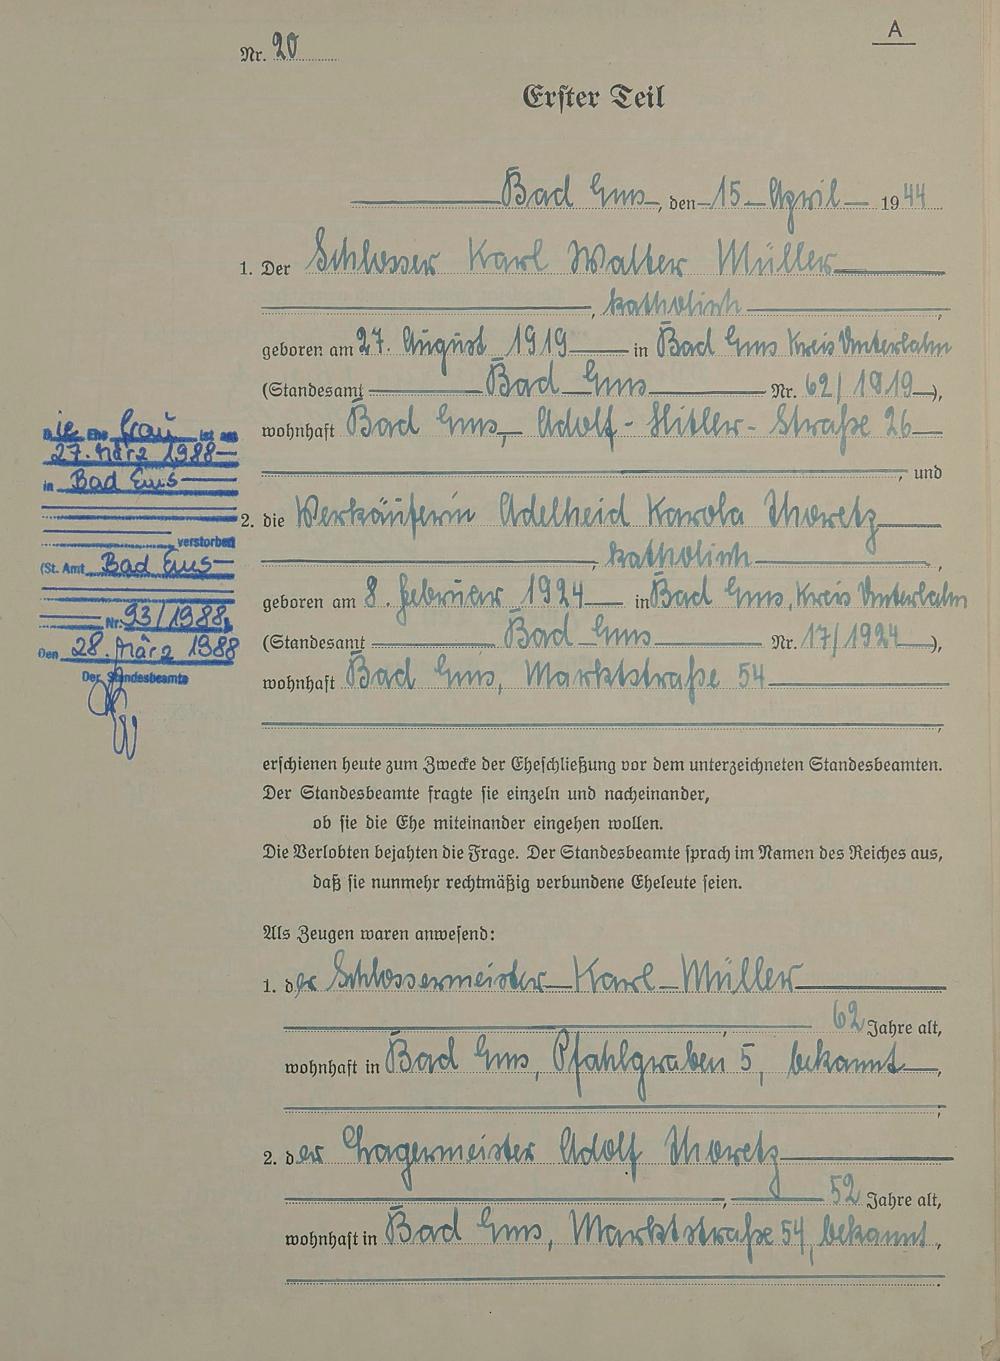 A
Nr. 20
Erster Teil
Bad Ems, den 15. April 1944
1. Der Schlosser Karl Walter Müller
, katholisch ,
geboren am 27. August 1919 in Bad Ems Kreis Unterlahn
(Standesamt Bad Ems Nr. 62/1919),
wohnhaft Bad Ems, Adolf-Hitler-Straße 26
, und
2. die Verkäuferin Adelheid Karola Thoretz
, katholisch ,
geboren am 8. Februar 1924 in Bad Ems, Kreis Unterlahn
(Standesamt Bad Ems Nr. 17/1924),
wohnhaft Bad Ems, Marktstraße 54
,
erschienen heute zum Zwecke der Eheschließung vor dem unterzeichneten Standesbeamten.
Der Standesbeamte fragte sie einzeln und nacheinander,
ob sie die Ehe miteinander eingehen wollen.
Die Verlobten bejahten die Frage. Der Standesbeamte sprach im Namen des Reiches aus,
daß sie nunmehr rechtmäßig verbundene Eheleute seien.
Als Zeugen waren anwesend:
1. der Schlossermeister Karl Müller
, 62 Jahre alt,
wohnhaft in Bad Ems, Pfahlgraben 5, bekannt ,
;
2. der Lagermeister Adolf Thoretz
, 52 Jahre alt,
wohnhaft in Bad Ems, Marktstraße 54, bekannt ,
.
Die Ehe frau ist am
27. März 1988
in Bad Ems
verstorben
(St. Amt Bad Ems
Nr. 93/1988)
Den 28. März 1988
Der Standesbeamte